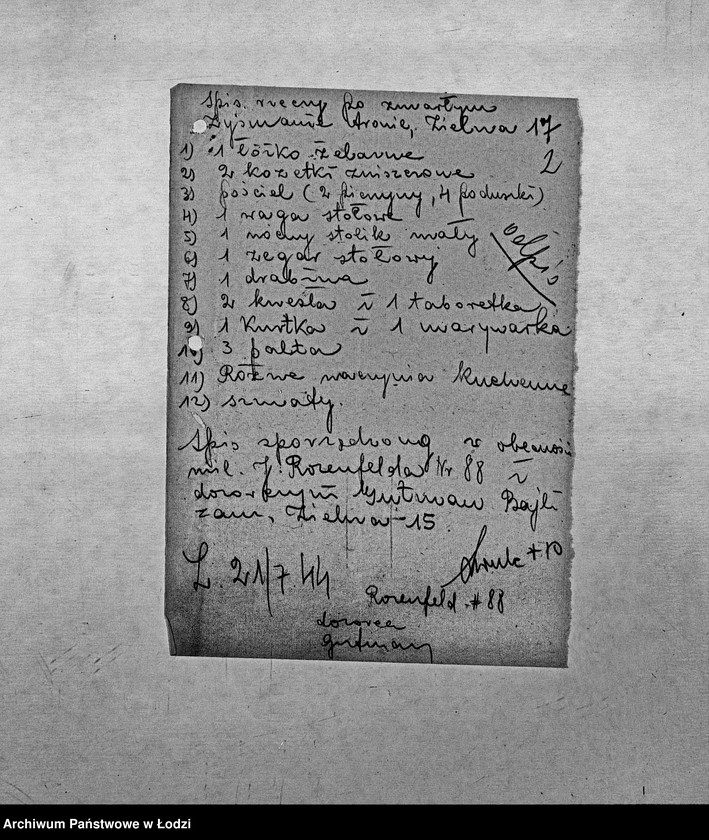 Spis rzeczy po zmarłym
Zysmanie Aronie, Zielna 17
2
1) 1 łóżko żelazne
2) 2 kozetki zniszczone
3) pościel (2 pierzyny, 4 poduszki)
4) 1 waga stołowa
5) 1 nocny stolik mały
odpis
6) 1 zegar stołowy
7) 1 drabina
8) 2 krzesła i 1 taboretka
9) 1 Kurtka i 1 marynarka
10) 3 palta
11) Różne naczynia kuchenne
12) szmaty.
Spis sporządzony w obecności
mil. J. Rozenfelda Nr 88 i
dozorczyni Gutman Bajli
zam. Zielna 15
L. 21/7.44
+70
Rozenfeld # 88
dozorca
Gutman